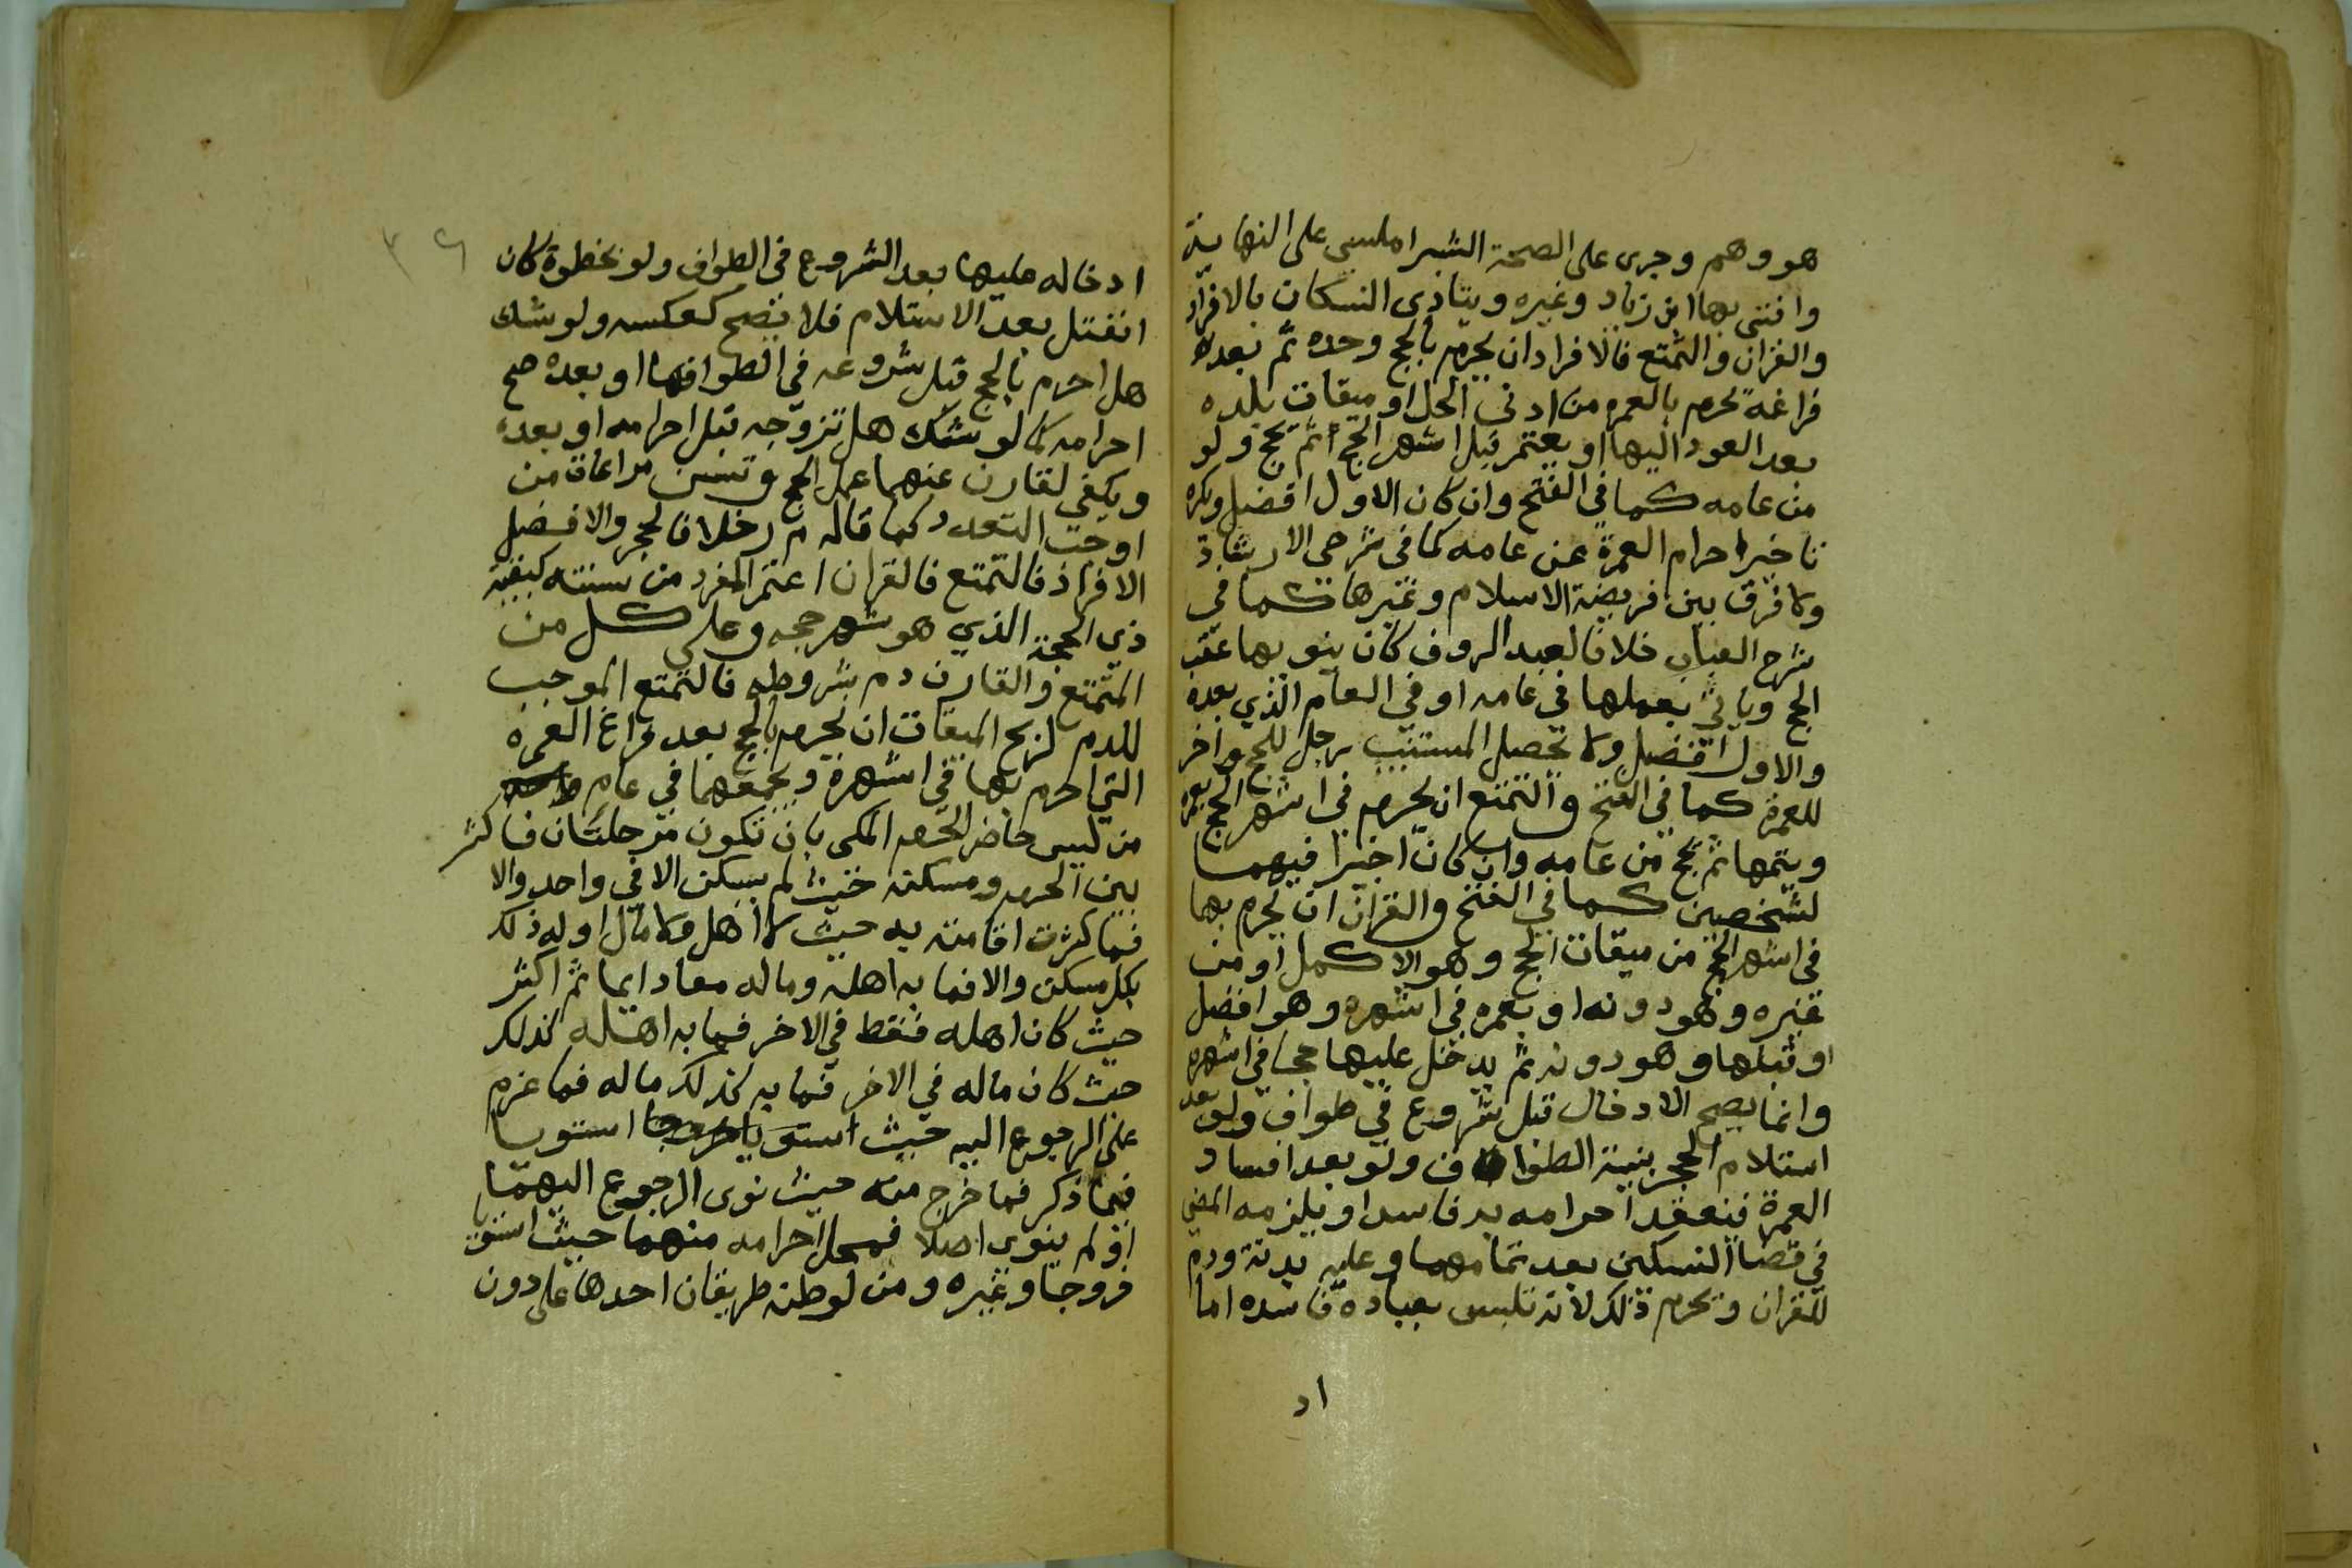 هو وهم وجرى على الصحة الشبراملسي على النهاية
وافتى بها ابن زياد وغيره ويتادى النسكان بالافراد
والقران والتمتع فالافراد ان يحرم بالحج وحده ثم بعده
فراغه يحرم بالعمره من ادنى الحل او ميقات بلده
بعد العود اليها او يعتمر قبل اشهر الحج ثم يحج ولو
من عامه كما في الفتح وان كان الاول افضل ويكره
تاخير احرام العمرة عن عامه كما في شرحي الارشاد
ولا فرق بين فريضة الاسلام وغيرها كما في
شرح العباب خلافا لعبد الروف كان ينو بها عقب
الحج وياتي بعملها في عامه او في العام الذي بعده
والاول افضل ولا تحصل المستنيب رجل للحج واخر
للعمرة كما في الفتح والتمتع ان يحرم في اشهر الحج بعمرة
ويتمها ثم يحج من عامه وان كان اجيرا فيهما
لشخصين كما في الفتح والقران ان يحرم بها
في اشهر الحج من ميقات الحج وهو الاكمل او من
غيره وهو دونه او بعمره في اشهره وهو افضل
او قبلها وهو دونه ثم يدخل عليها حجا في اشهره
وانما يصح الادخال قبل شروع في طواف ولو بعد
استلام الحجر بنية الطواف ولو بعد افساد
العمرة فينعقد احرامه به فاسدا ويلزمه المضي
في قضا النسكين بعد تمامهما وعليه بدنة ودم
للقران ويحرم ذلك لانه تلبس بعباده فاسده اما
اد
ادخاله عليها بعد الشروع في الطواف ولو بخطوة كان
انفتل بعد الاستلام فلا يصح كعكسه ولو شك
هل احرم بالحج قبل شروعه في الطوافها او بعده صح
احرامه كما لو شك هل تزوجه قبل احرامه او بعده
ويكفي لقارن عنهما عمل الحج وتسن مراعاة من
اوجب التعدد كما قاله م ر خلافا لحجر والافضل
الافراد فالتمتع فالقران اعتمر المفرد من سنته كبقية
ذي الحجة الذي هو شهر حجه وعلى كل من
المتمتع والقارن دم بشروطه فالتمتع الموجب
للدم لربح الميقات ان يحرم بالحج بعد فراغ العمره
التي احرم بها في اشهرة ويجمعهما في عام واحد
من ليس حاضر الحرم المكي بان تكون مرحلتان فاكثر
بين الحرم ومسكنه حيث لم يسكن الا في واحد والا
فما كثرت اقامته به حيث لا اهل ولا مال او له ذلك
بكل مسكن والا فما به اهله وماله معا دايما ثم اكثر
حيث كان اهله فقط في الاخر فما به اهله كذلك
حيث كان ماله في الاخر فما به كذلك ماله فما عزم
على الرجوع اليه حيث استويا استويا
فيما ذكر فما خرج منه حيث نوى الرجوع اليهما
او لم ينوى اصلا فمحل احرامه منهما حيث استويا
خروجا وغيره ومن لوطنه طريقان احدها على دون